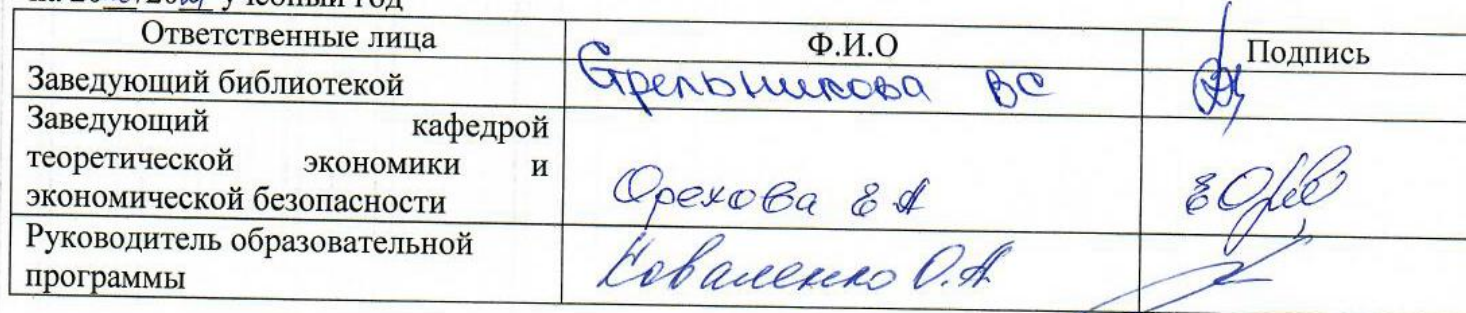 учебный год
Ответственные лица Ф.И.О Подпись
Заведующий библиотекой Стрельникова ВС
Заведующий кафедрой
теоретической экономики и
экономической безопасности Орехова Е А
Руководитель образовательной
программы Коваленко О.А